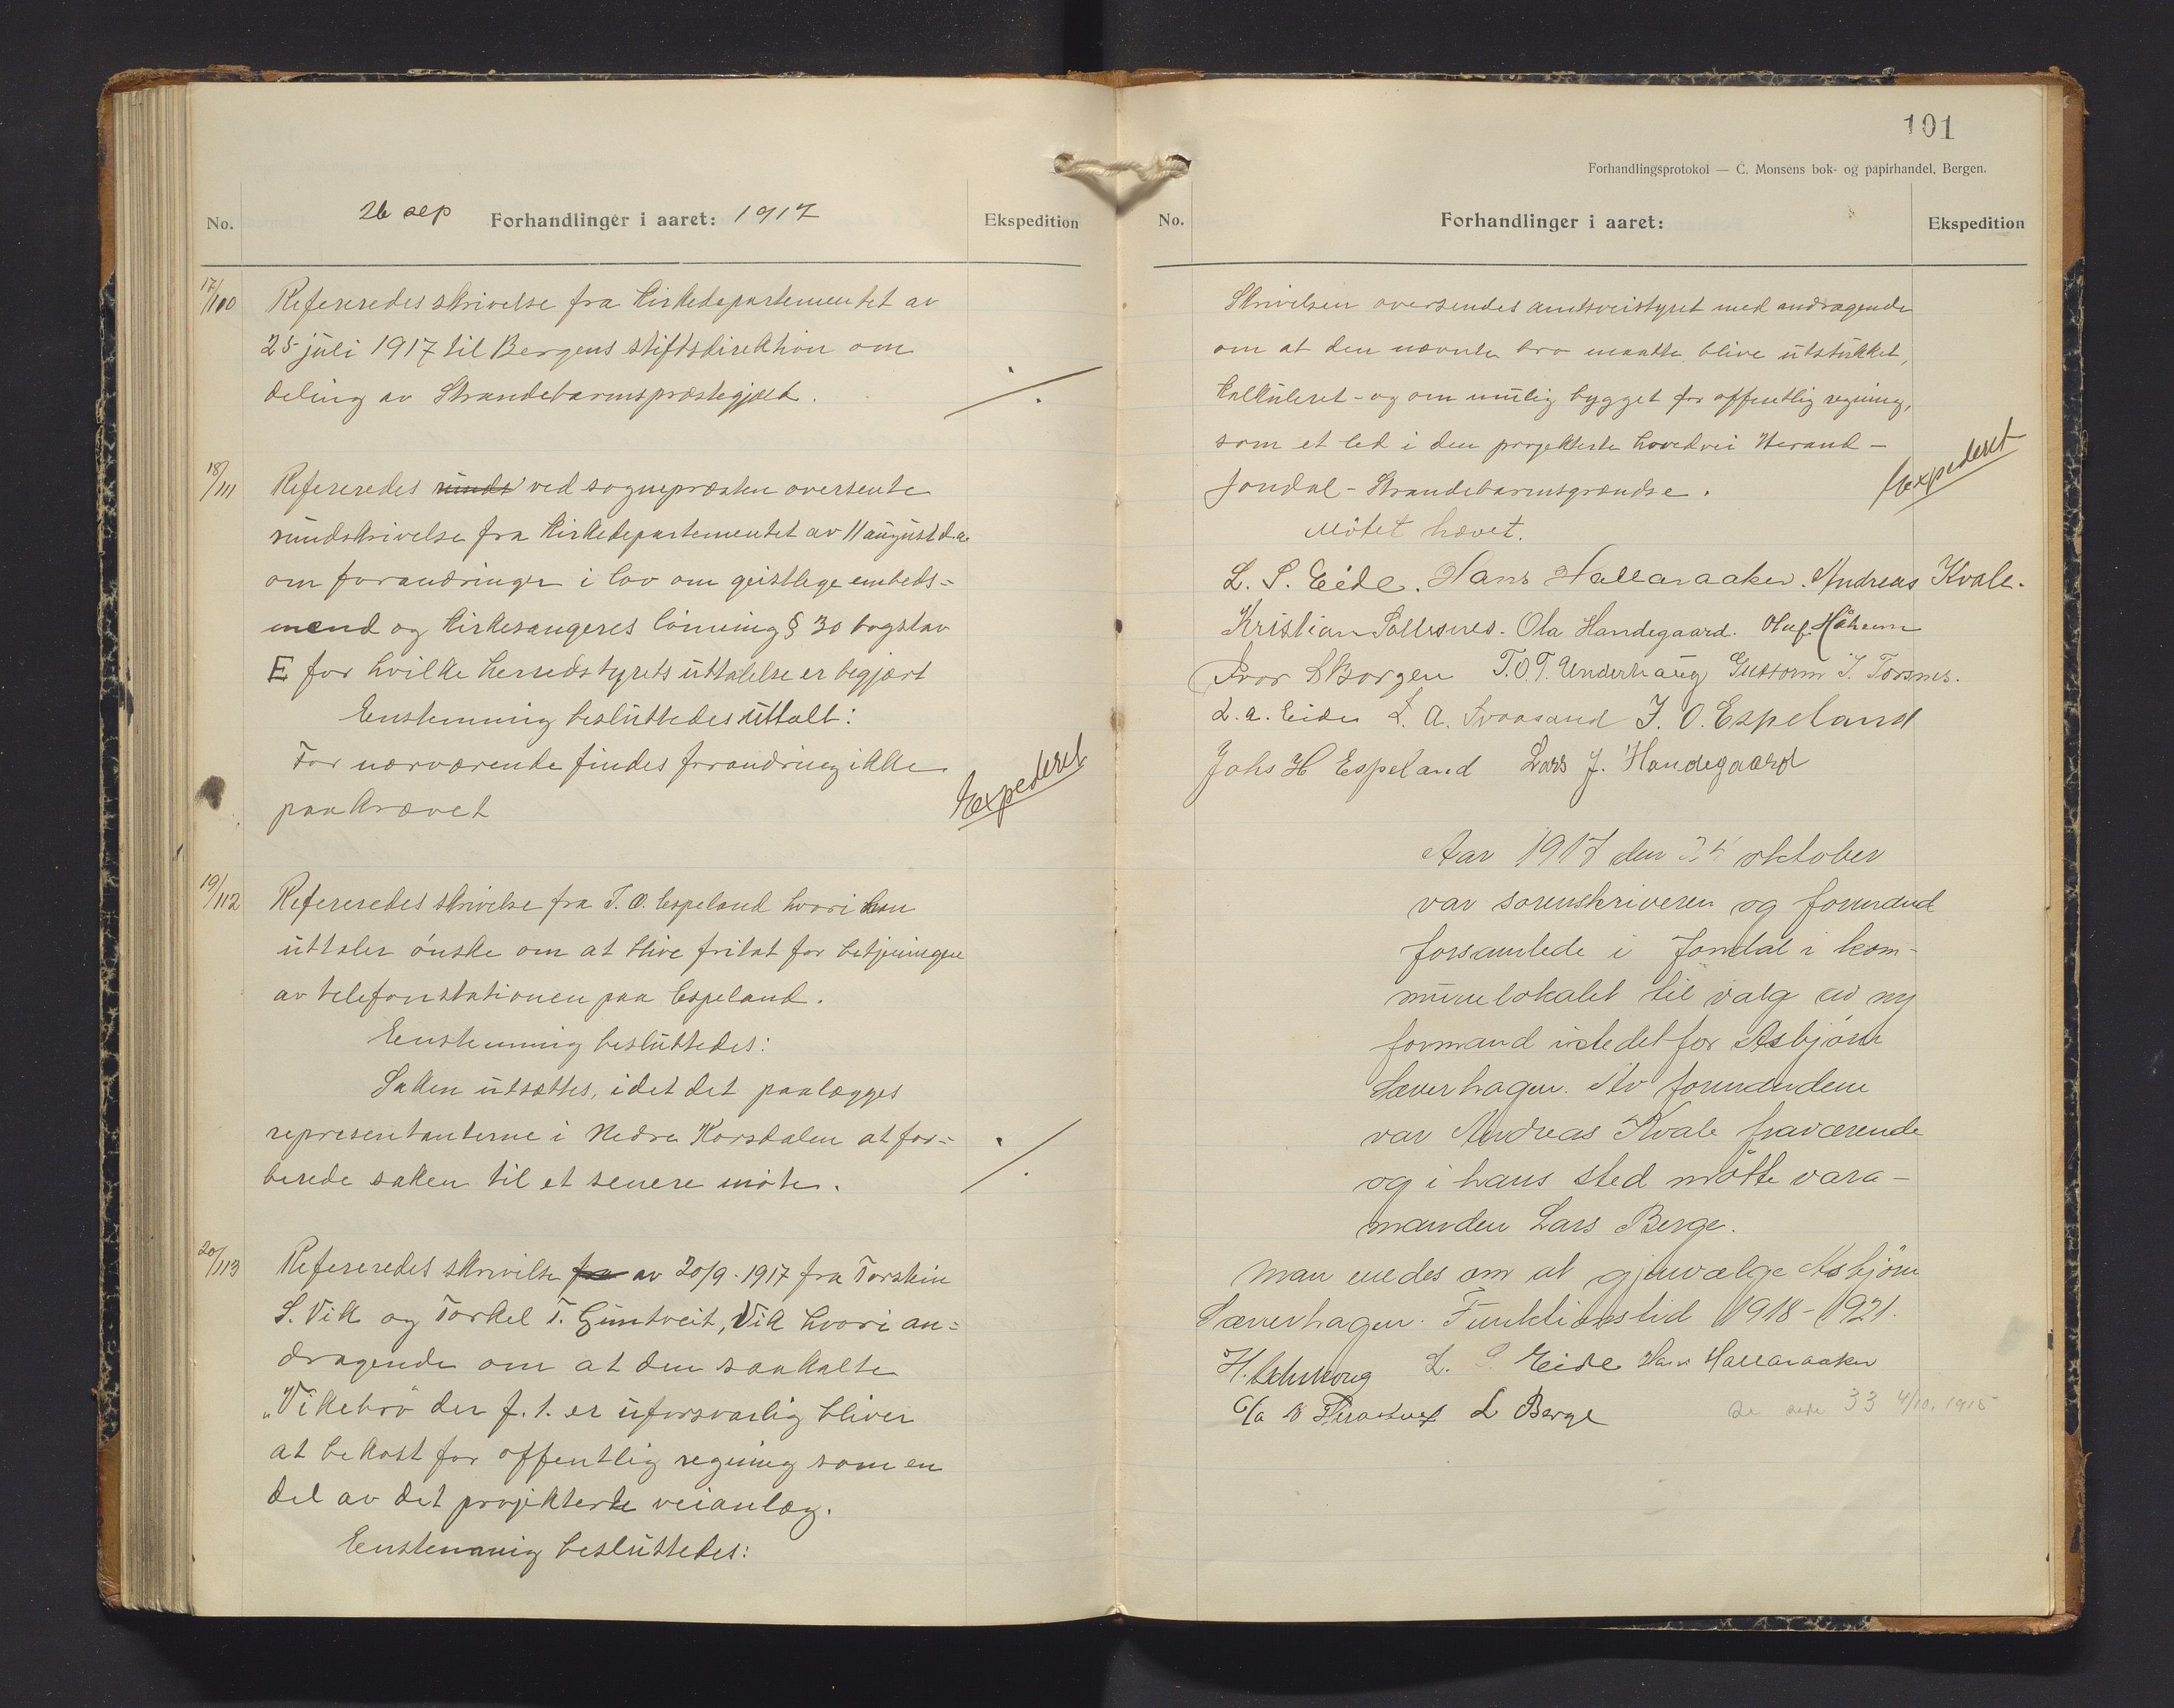 26 sep Forhandlinger i aaret: 1917
No.
Ekspedition
17/110 Refereredes skrivelse fra Kirkedepartementet av
25 juli 1917 til Bergens stiftsdirektion om
deling av Strandebarmsprestegjæld.
18/111 Refereredes runds ved sognepræsten oversente
rundskrivelse fra Kirkedepartementet av 11 august d.a.
om forandringer i lov om geistlege embeds=
mænd og Kirkesangeres lönning § 30 bogstav
E for hvilke herredstyrets uttalelse er begjært
Enstemmig besluttedes uttalt:
For nærværende findes forandring ikke
paakrævet
Expederet
19/112 Refereredes skrivelse fra J. O. Espeland hvori han
uttaler önske om at blive fritat for betjeningen
av telefonstationen paa Espeland.
Enstemmig besluttedes:
Saken utsættes, idet det paalægges
representanterne i Nedre Korsdalen at for=
berede saken til et senere möte.
20/113 Refereredes skrivelse fra av 20/9. 1917 fra Torstein
S. Vik og Torkel T. Guntveit, Vik hvori an=
dragende om at den saakalte
"Vikebro" der f. t. er uforsvarlig bliver
at bekost for offentlig regning som en
del av det projekterte veianlæg.
Enstemmig besluttedes:
101
Forhandlingsprotokol — C. Monsens bok- og papirhandel, Bergen.
No.
Forhandlinger i aaret:
Ekspedition
Skrivelsen oversendes amtsveistyret med andragende
om at den nævnte bro maatte blive utstukket,
kalkuleret - og om mulig bygget for offentlig regning,
som et led i den projekterte hovedvei Herand -
Jondal - Strandebarmsgrændse.
Expederet
Mötet hævet.
L. S. Eide. Hans Hallaraaker. Andreas Kvale.
Kristian Sollesnes. Ola Handegaard. Oluf Håheim
Ivar S Borgen T. O. T. Underhaug Guttorm J. Torsnes.
L. a. Eide L. A. Svaasand J. O. Espeland
Johs H Espeland Lars J. Handegaard
Aar 1917 den 25 oktober
var sorenskriveren og formænd
forsamlede i Jondal i kom-
munelokalet til valg av ny
formand istedet for Asbjörn
Sæverhagen. Av formændene
var Andreas Kvale fraværende
og i hans sted mötte vara-
manden Lars Berge.
Man enedes om at gjenvælge Asbjörn
Sæverhagen. Funktionstid 1918-1921.
H. L. S. Eide Hans Hallaraaker
L Berge
Se side 33 4/10. 1915